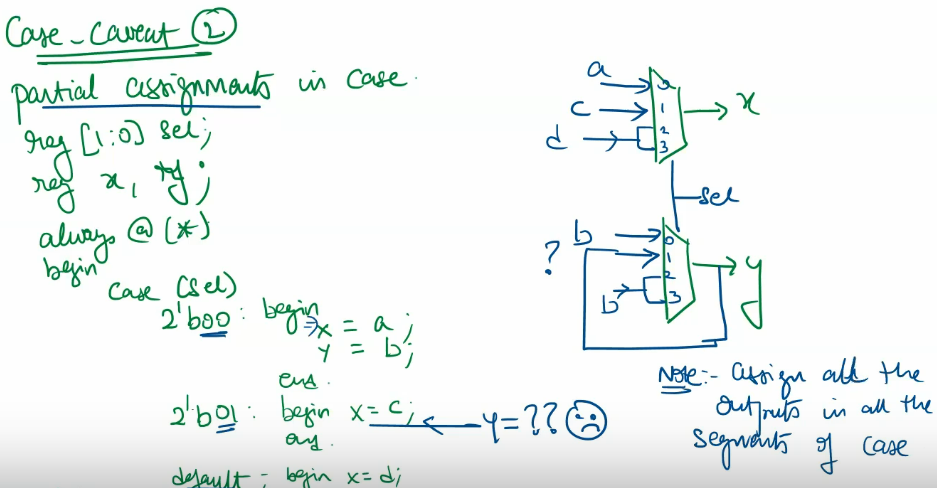 Case-Caveat 2
partial assignments in case.
reg [1:0] sel;
reg x, y;
always @ (*)
begin
case (sel)
2'b00 : begin
x = a ;
y = b;
end.
2'b01 : begin x=c;
end.
y=??
default : begin x=d;
a
c
d
0
1
2
3
x
sel
?
b
b
0
1
2
3
y
Note:- assign all the
outputs in all the
segments of case